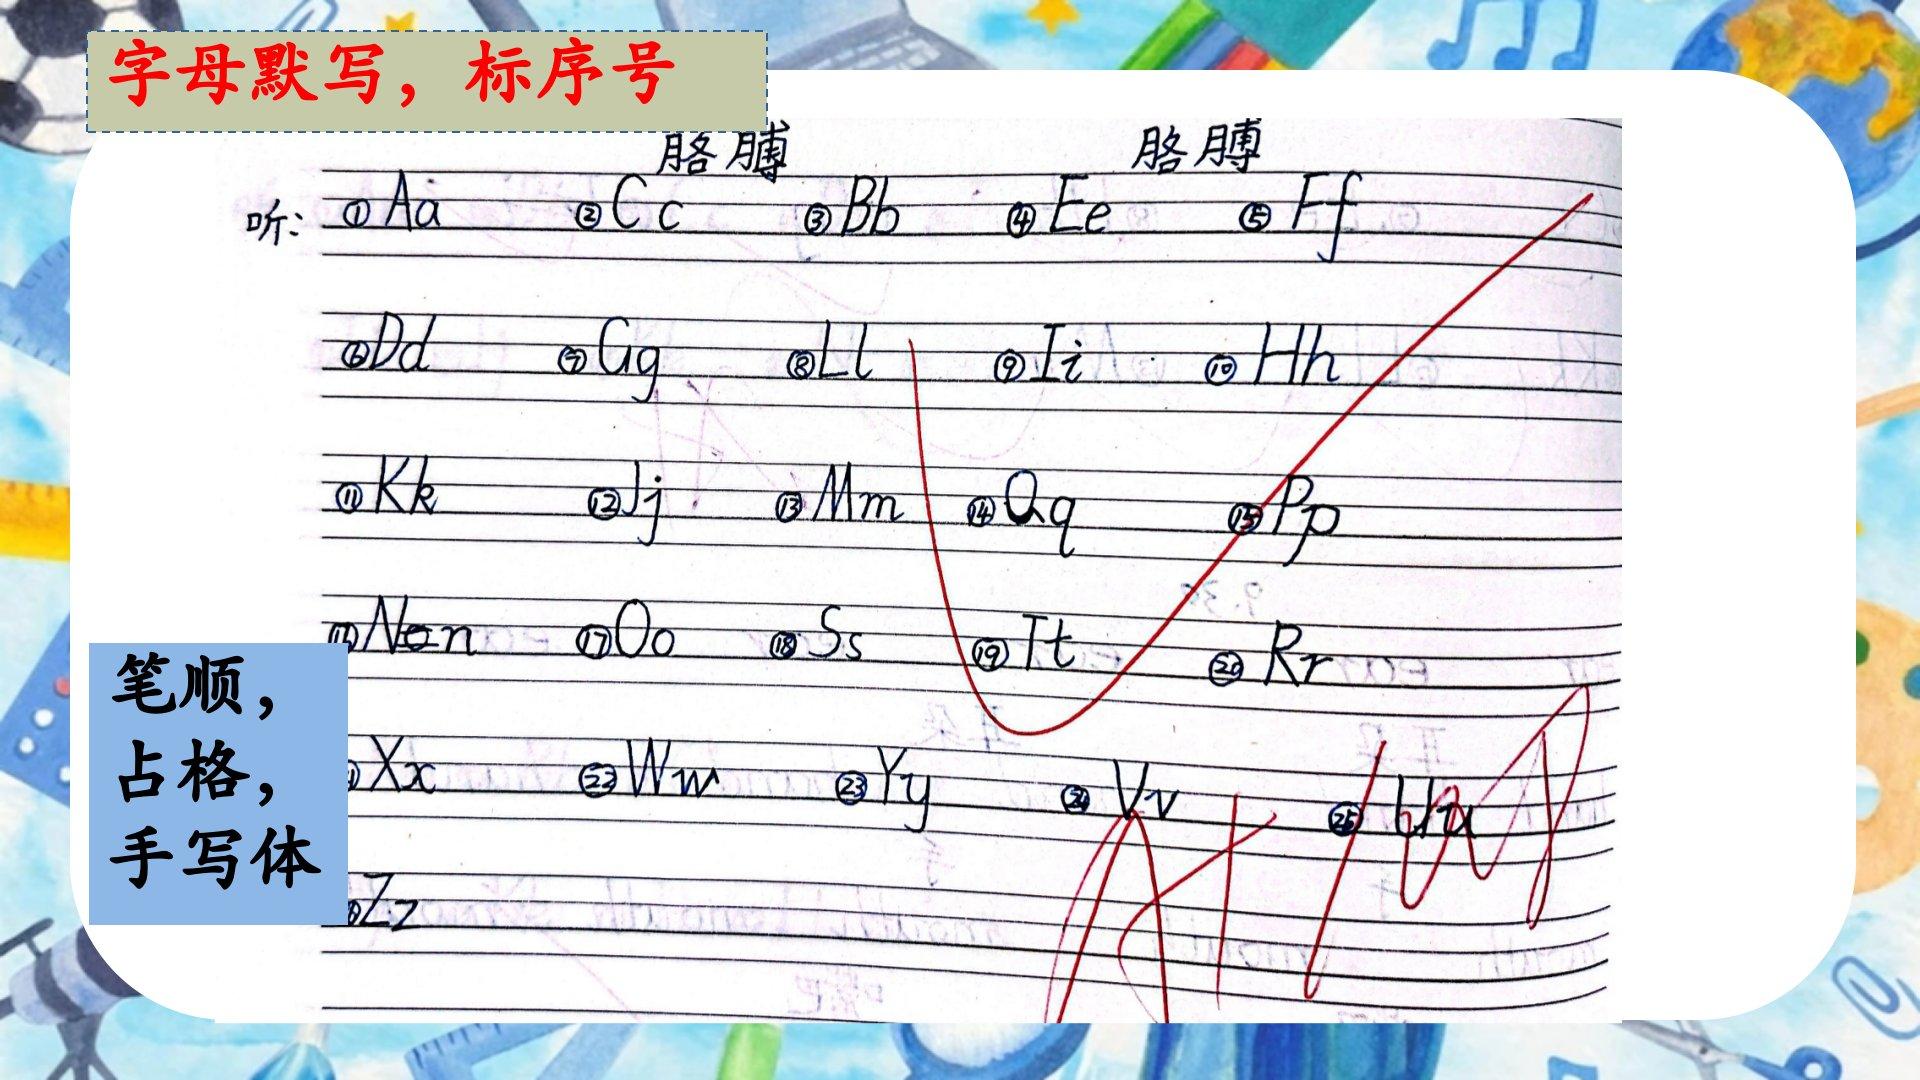 字母默写，标序号
胳膊 胳膊
听: ①Aa ②Cc ③Bb ④Ee ⑤Ff
⑥Dd ⑦Gg ⑧Ll ⑨Ii ⑩Hh
⑪Kk ⑫Jj ⑬Mm ⑭Qq ⑮Pp
⑯Nn ⑰Oo ⑱Ss ⑲Tt ⑳Rr
Xx ㉒Ww ㉓Yy ㉔Vv ㉕Uu
Zz
笔顺，
占格，
手写体